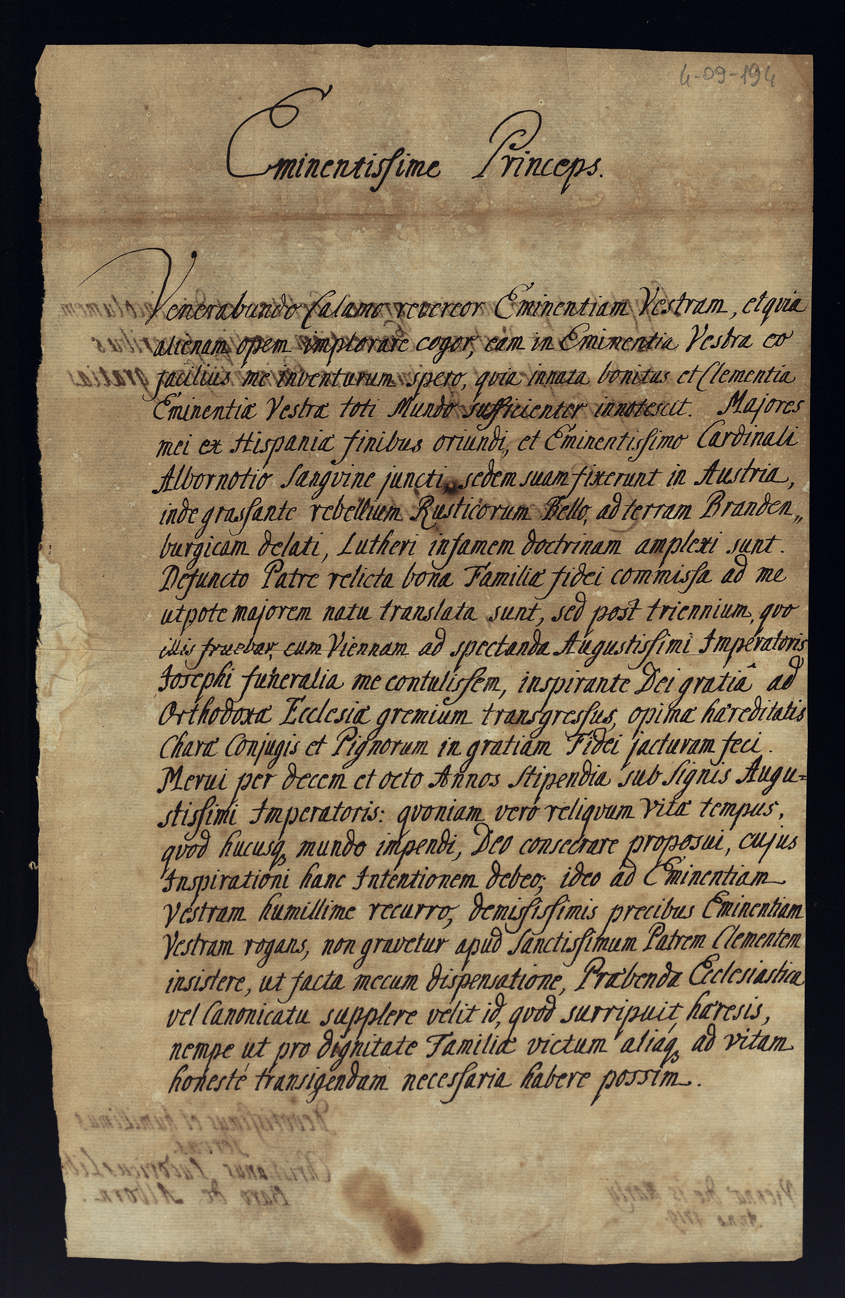 4-09-194
Eminentissime Princeps.
Venerabundo Calamo revereor Eminentiam Vestram, et quia
alienam opem implorare cogor, eam in Eminentia Vestra eo
facilius me inventurum spero, quia innata bonitas et Clementia
Eminentiæ Vestræ toti Mundo sufficienter innotescit. Majores
mei ex Hispaniæ finibus oriundi, et Eminentissimo Cardinali
Albornotio Sangvine juncti, sedem suam fixerunt in Austria,
inde grassante rebellium Rusticorum Bello, ad terram Branden„
burgicam delati, Lutheri infamem doctrinam amplexi sunt.
Defuncto Patre relicta bona Familiæ fidei commissa ad me
utpote majorem natu translata sunt, sed post triennium, quo
illis fruebar, cum Viennam ad spectanda Augustissimi Imperatoris
Josephi funeralia me contulissem, inspirante Dei gratiâ ad
Orthodoxæ Ecclesiæ gremium transgressus, opimæ hæreditatis
Charæ Conjugis et Pignorum in gratiam Fidei jacturam feci.
Merui per decem et octo Annos Stipendia sub Signis Augu=
stissimi Imperatoris: quoniam vero reliquum Vitæ tempus,
quod hucusq, mundo impendi, Deo consecrare proposui, cujus
Inspirationi hanc Intentionem debeo; ideo ad Eminentiam
Vestram humillime recurro, demississimis precibus Eminentiam
Vestram rogans, non gravetur apud Sanctissimum Patrem Clementem
insistere, ut facta mecum dispensatione, Præbenda Ecclesiastica
vel Canonicatu supplere velit id, quod surripuit hæresis,
nempe ut pro dignitate Familiæ victum aliaq, ad vitam
honesté transigendam necessaria habere possim.